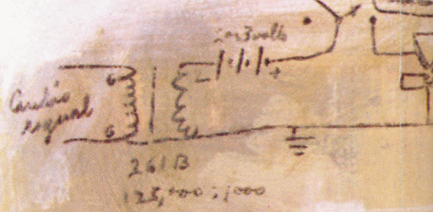 2 or 3 volts
+
signal
6
6
261B
125,000 : 1000